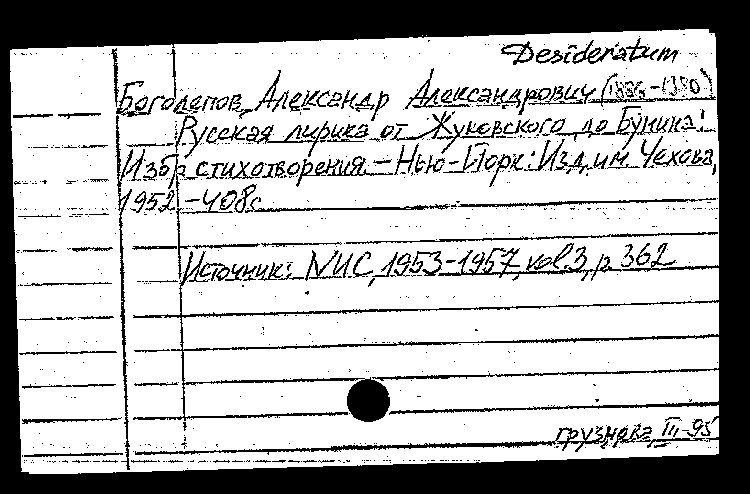 Desideratum
Боголепов, Александр Александрович (1886-1980)
Русская лирика от Жуковского до Бунина:
Избр. стихотворения. — Нью-Йорк: Изд. им. Чехова,
1952. - 408 с.
Источник: NUC, 1953-1957, vol. 3, p. 362
грузнова, III-95